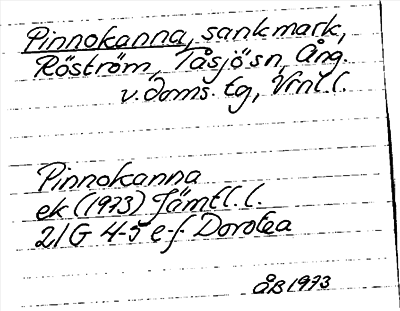 Pinnokanna, sankmark,
Röström, Tåsjö sn, Ång.
v. Doms. tg, Vrnl. l.
Pinnokanna
ek (1973) Jämtl. l.
21G 4-5 e-f Dorotea
ÅB 1973